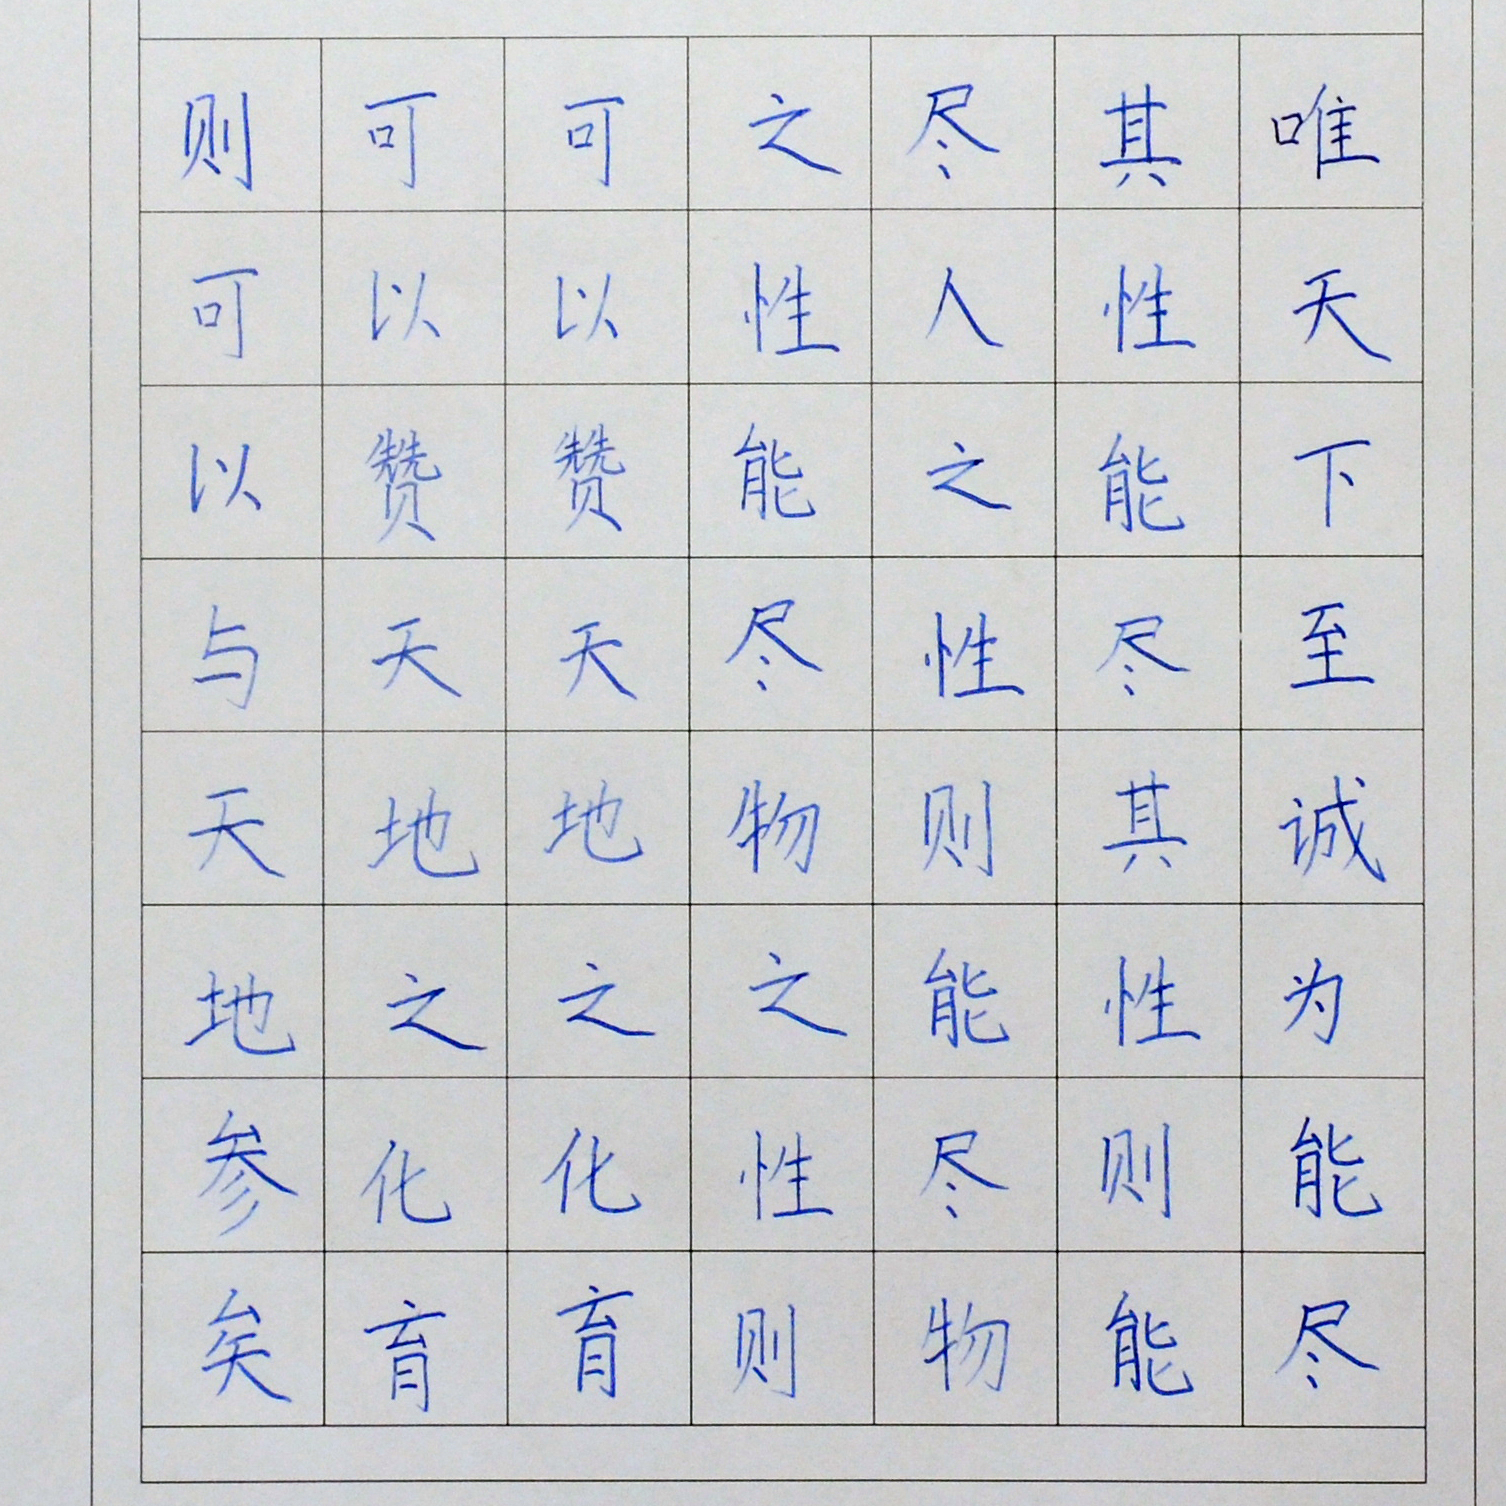 唯天下至诚为能尽
其性能尽其性则能
尽人之性则能尽物
之性能尽物之性则
可以赞天地之化育
可以赞天地之化育
则可以与天地参矣